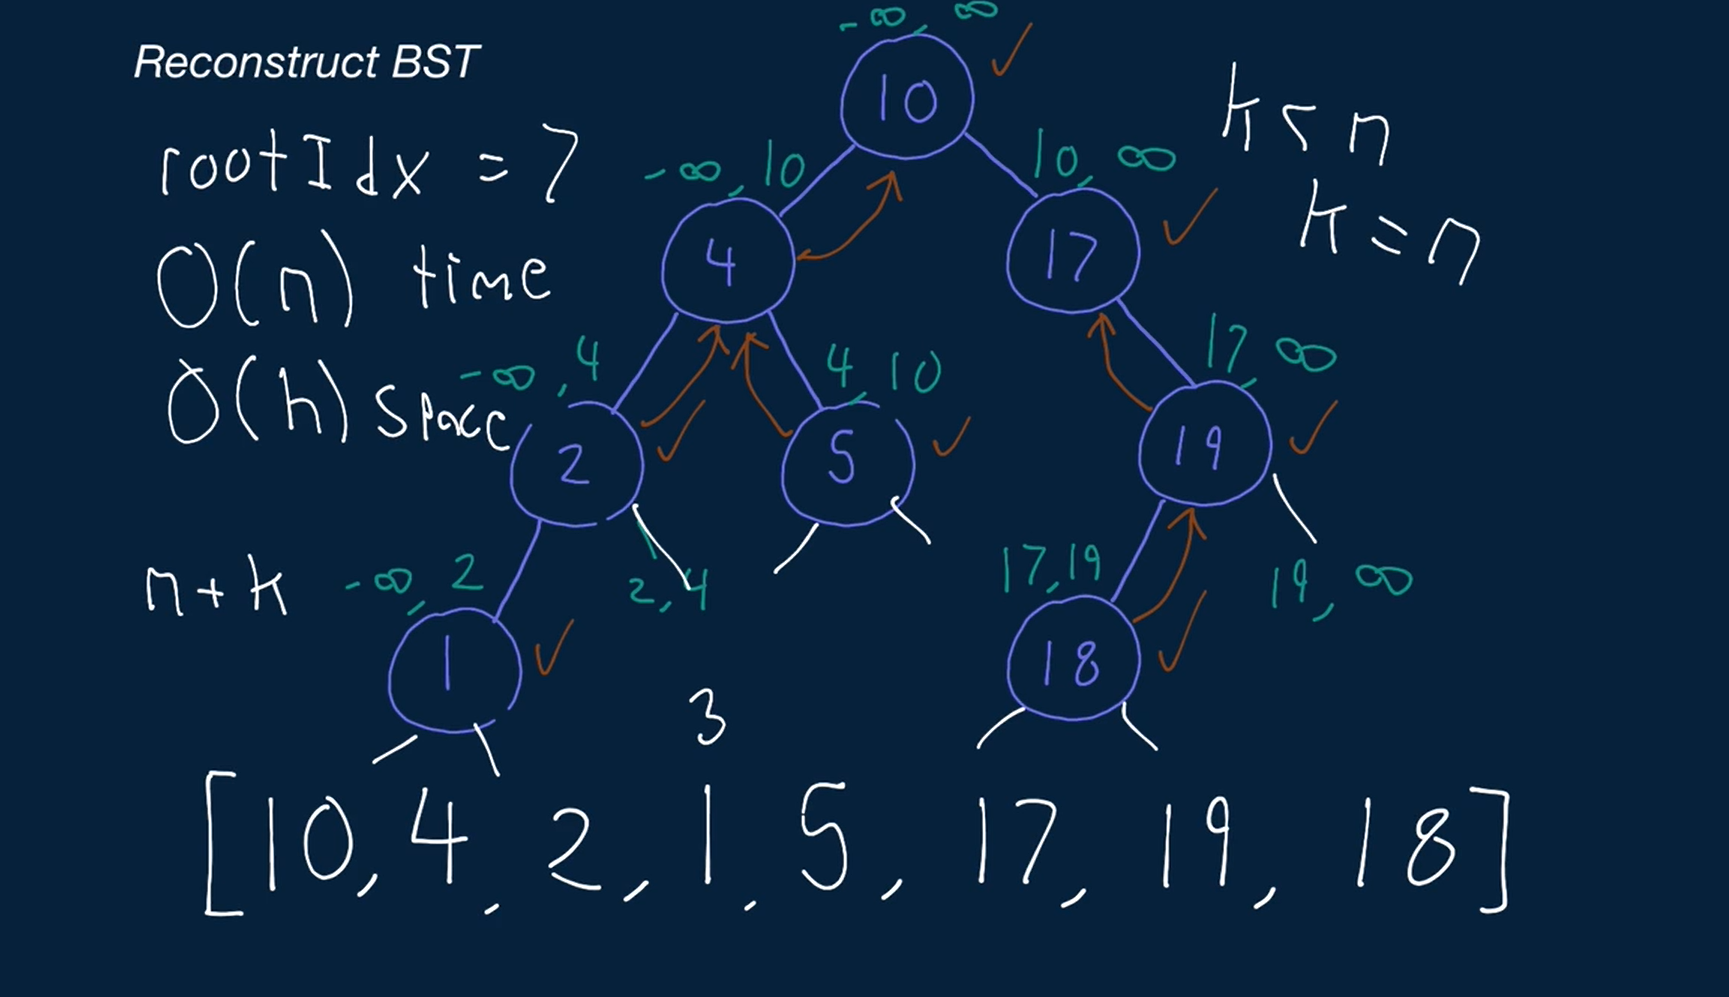 Reconstruct BST
rootIdx = 7
O(n) time
O(h) space
n + k
-∞, ∞
10
-∞, 10
10, ∞
k < n
k = n
4
17
-∞, 4
4, 10
17, ∞
2
5
19
-∞, 2
2, 4
17, 19
19, ∞
1
18
3
[10, 4, 2, 1, 5, 17, 19, 18]